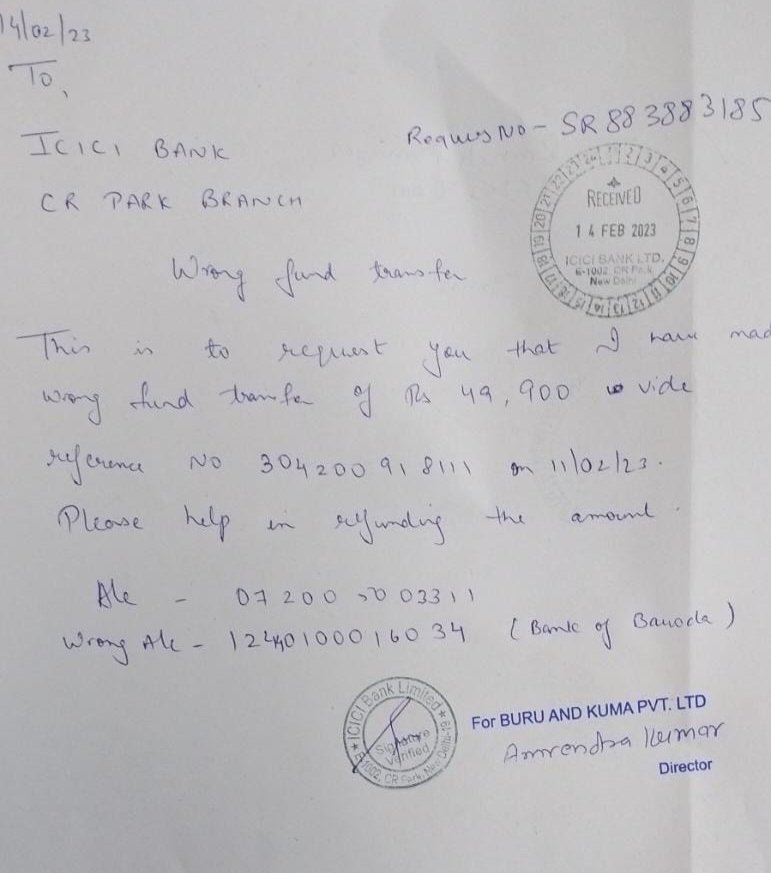 14/02/23
To,
ICICI BANK
Reques No - SR883883185
CR PARK BRANCH
RECEIVED
14 FEB 2023
ICICI BANK LTD.
E-1002, CR Park,
New Delhi
Wrong fund transfer
This is to request you that I have mad
wrong fund transfer of Rs 49,900 vide
reference NO 304200918111 on 11/02/23.
Please help in refunding the amount.
A/c - 
Wrong A/c - (Bank of Baroda)
ICICI Bank Limited
Signature
Verified
E-1002, CR Park, New Delhi-19
For BURU AND KUMA PVT. LTD
Amrendra Kumar
Director